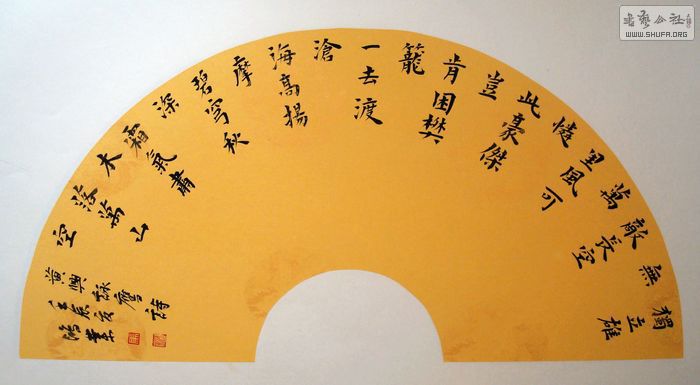 獨立雄
無
敵長空
萬
里風可
憐
此豪傑
豈
肯困樊
籠
一去渡
滄
海高揚
摩
碧穹秋
深
霜氣肅
木
落萬山
空
黄興詠鷹詩
壬辰
鴻業
書藝公社
WWW.SHUFA.ORG